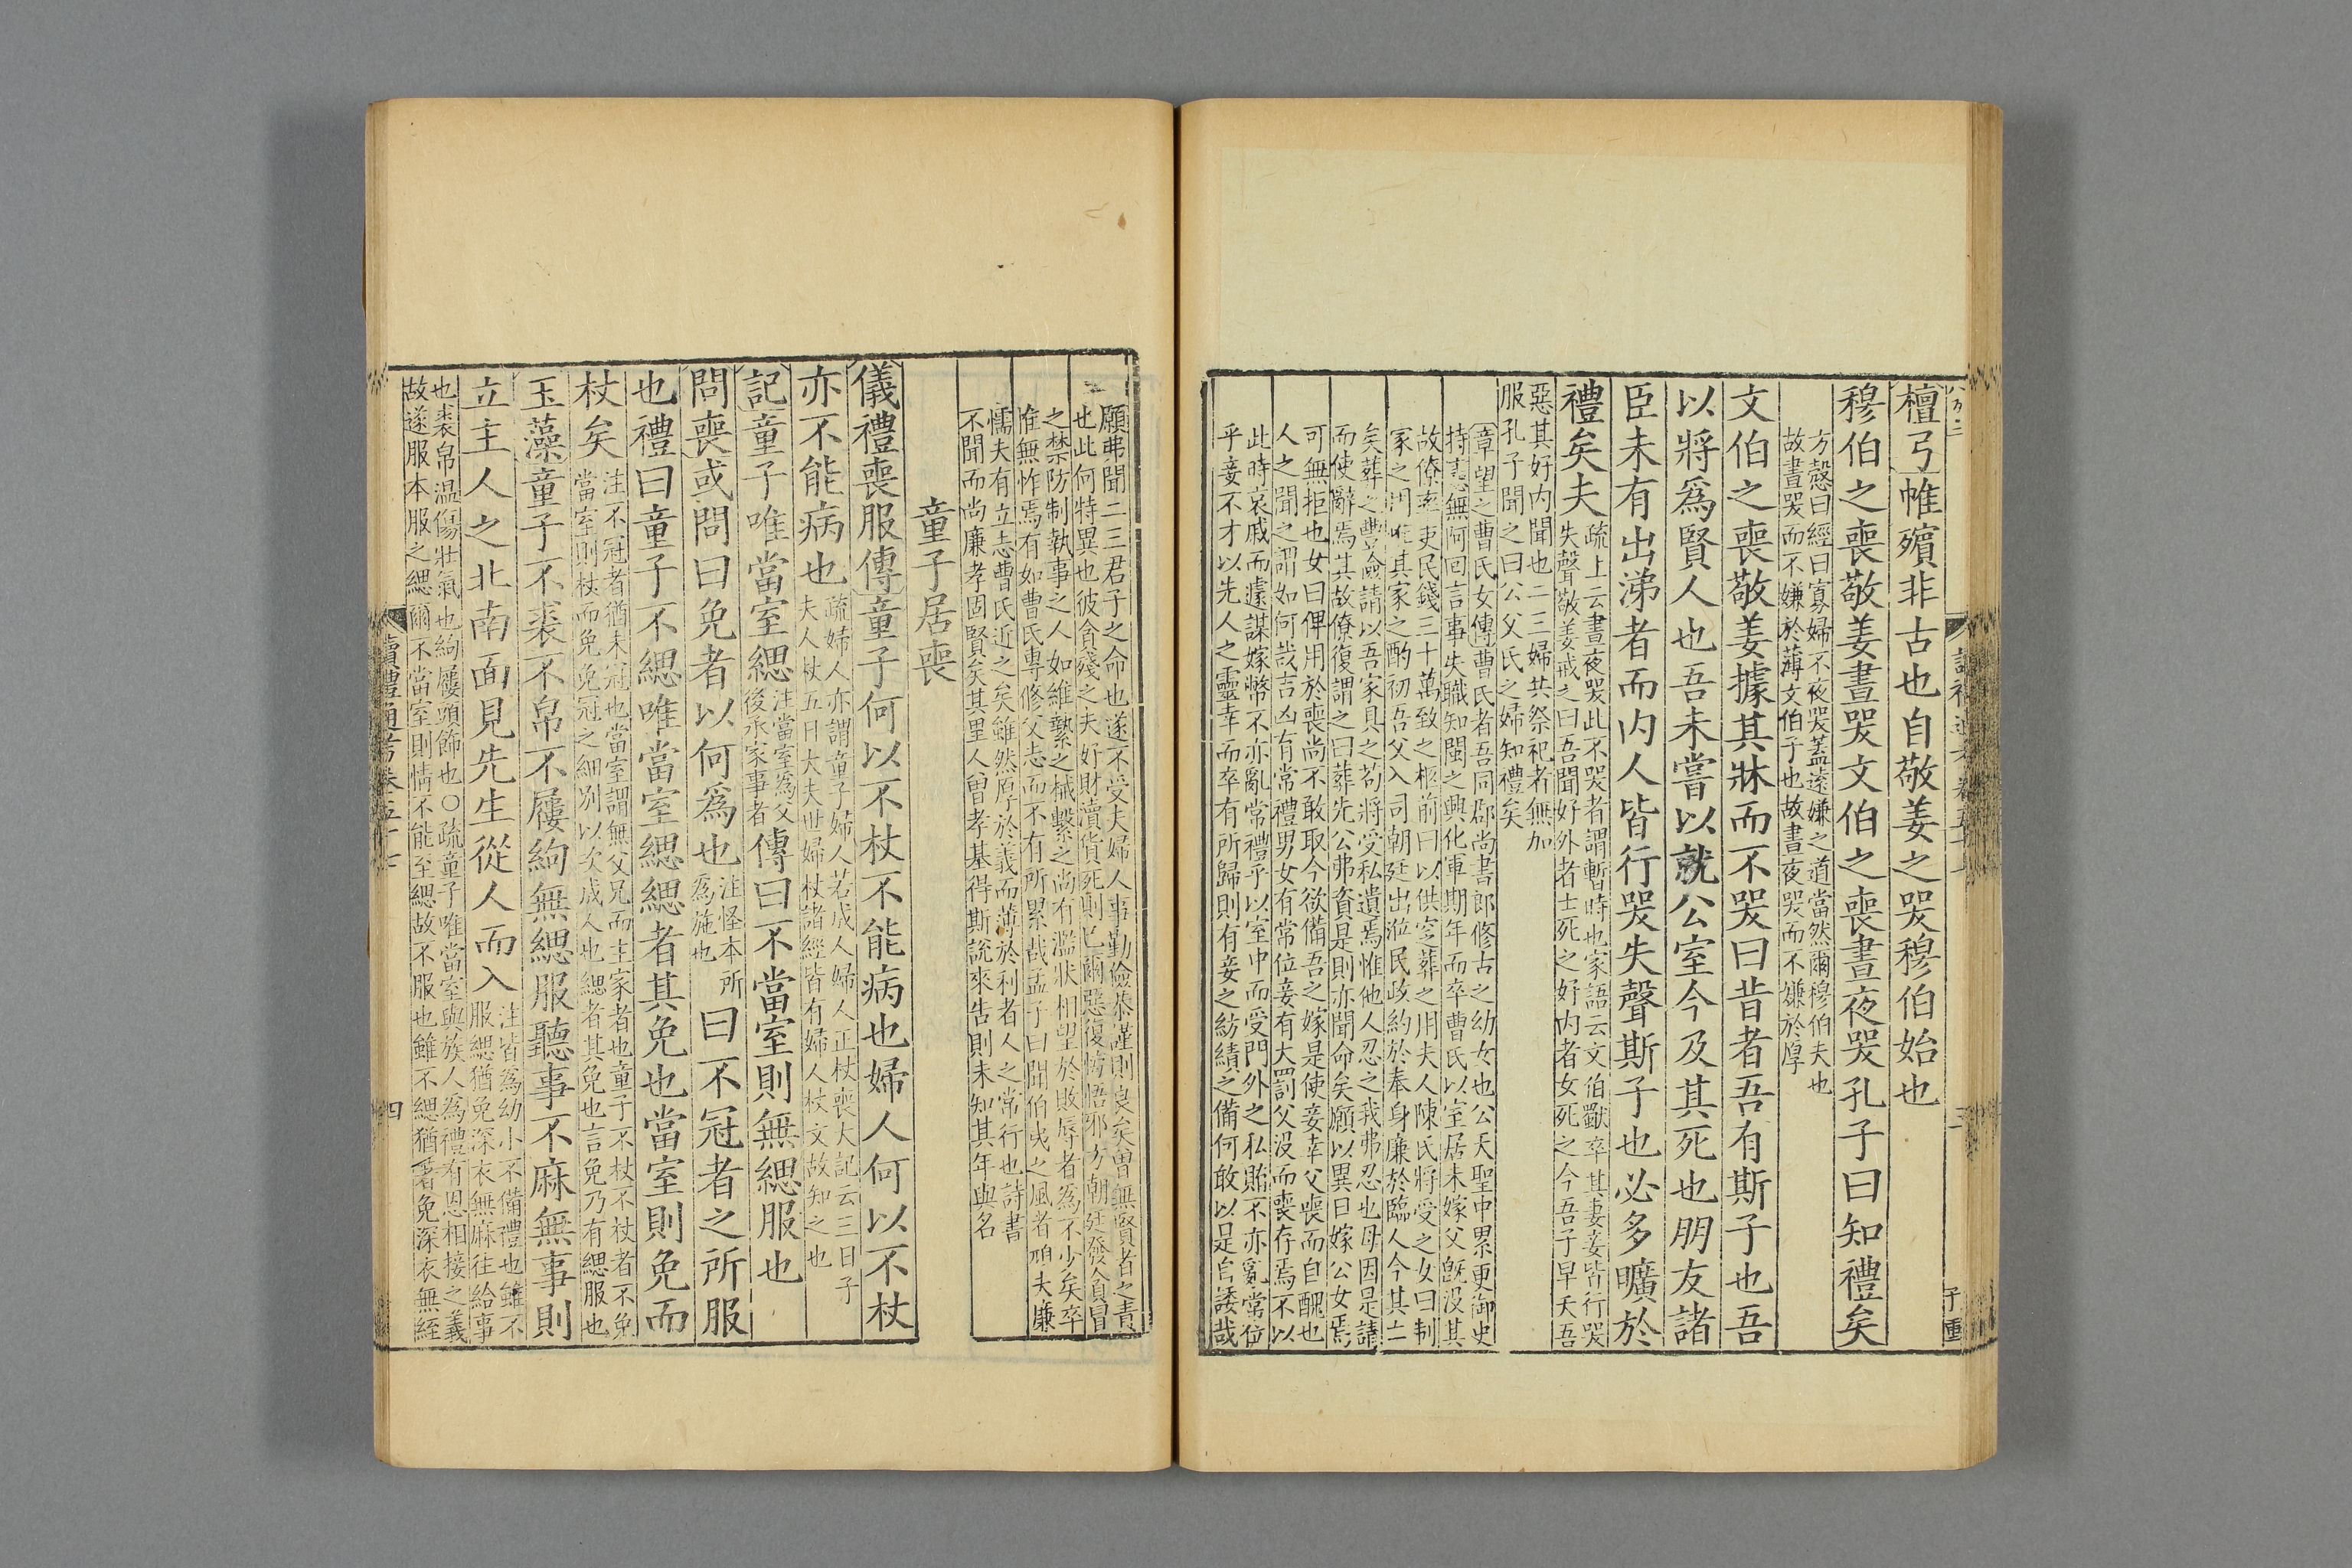 檀弓帷殯非古也自敬姜之哭穆伯始也
穆伯之喪敬姜晝哭文伯之喪晝夜哭孔子曰知禮矣
方慤曰經曰寡婦不夜哭蓋遠嫌之道當然爾穆伯夫也
故晝哭而不嫌於薄文伯子也故晝夜哭而不嫌於厚
文伯之喪敬姜據其牀而不哭曰昔者吾有斯子也吾
以將爲賢人也吾未嘗以就公室今及其死也朋友諸
臣未有出涕者而内人皆行哭失聲斯子也必多曠於
禮矣夫
疏上云晝夜哭此不哭者謂暫時也家語云文伯歜卒其妻妾皆行哭
失聲敬姜戒之曰吾聞好外者士死之好内者女死之今吾子早夭吾
惡其好内聞也二三婦共祭祀者無加
服孔子聞之曰公父氏之婦知禮矣
章望之曹氏女傳曹氏者吾同郡尚書郎修古之幼女也公天聖中累更御史
持憲無阿回言事失職知閩之興化軍期年而卒曹氏以室居未嫁父旣没其
故僚率吏民錢三十萬致之柩前曰以供窆葬之用夫人陳氏將受之女曰制
家之用唯其家之酌初吾父入司朝廷出涖民政約於奉身廉於臨人今其亡
矣葬之豐儉請以吾家具之苟將受私遺焉惟他人忍之我弗忍也母因是請
而使辭焉其故僚復謂之曰葬先公弗資是則亦聞命矣願以異日嫁公女焉
可無拒也女曰俾用於喪尚不敢取今欲備吾之嫁是使妾幸父喪而自醜也
人之聞之謂如何哉吉凶有常禮男女有常位妾有大罰父没而喪存焉不以
此時哀戚而遽謀嫁幣不亦亂常禮乎以室中而受門外之私賄不亦亂常位
乎妾不才以先人之靈幸而卒有所歸則有妾之紡績之備何敢以是自諉哉
願弗聞二三君子之命也遂不受夫婦人事勤儉恭謹則良矣曾無賢者之責
也此何特異也彼貪殘之夫好財瀆貨死則已爾惡復悔悟邪方朝廷發貪冒
之禁防制執事之人如維縶之械繫之尚有濫狀相望於敗辱者爲不少矣卒
惟無怍焉有如曹氏專修父志而不有所累哉孟子曰聞伯夷之風者頑夫廉
懦夫有立志曹氏近之矣雖然原於義而薄於利者人之常行也詩書
不聞而尚廉孝固賢矣其里人曾孝基得斯說來告則未知其年與名
童子居喪
儀禮喪服傳童子何以不杖不能病也婦人何以不杖
亦不能病也
疏婦人亦謂童子婦人若成人婦人正杖喪大記云三日子
夫人杖五日大夫世婦杖諸經皆有婦人杖文故知之也
記童子唯當室緦
注當室爲父
後承家事者
傳曰不當室則無緦服也
問喪或問曰免者以何爲也
注怪本所
爲施也
曰不冠者之所服
也禮曰童子不緦唯當室緦緦者其免也當室則免而
杖矣
注不冠者猶未冠也當室謂無父兄而主家者也童子不杖不杖者不免
當室則杖而免免冠之細别以次成人也緦者其免也言免乃有緦服也
玉藻童子不裘不帛不屨絇無緦服聽事不麻無事則
立主人之北南面見先生從人而入
注皆爲幼小不備禮也雖不
服緦猶免深衣無麻往給事
也裘帛温傷壯氣也絇屨頭飾也○疏童子唯當室與族人爲禮有恩相接之義
故遂服本服之緦爾不當室則情不能至緦故不服也雖不緦猶著免深衣無絰
讀禮通考卷五十七
四